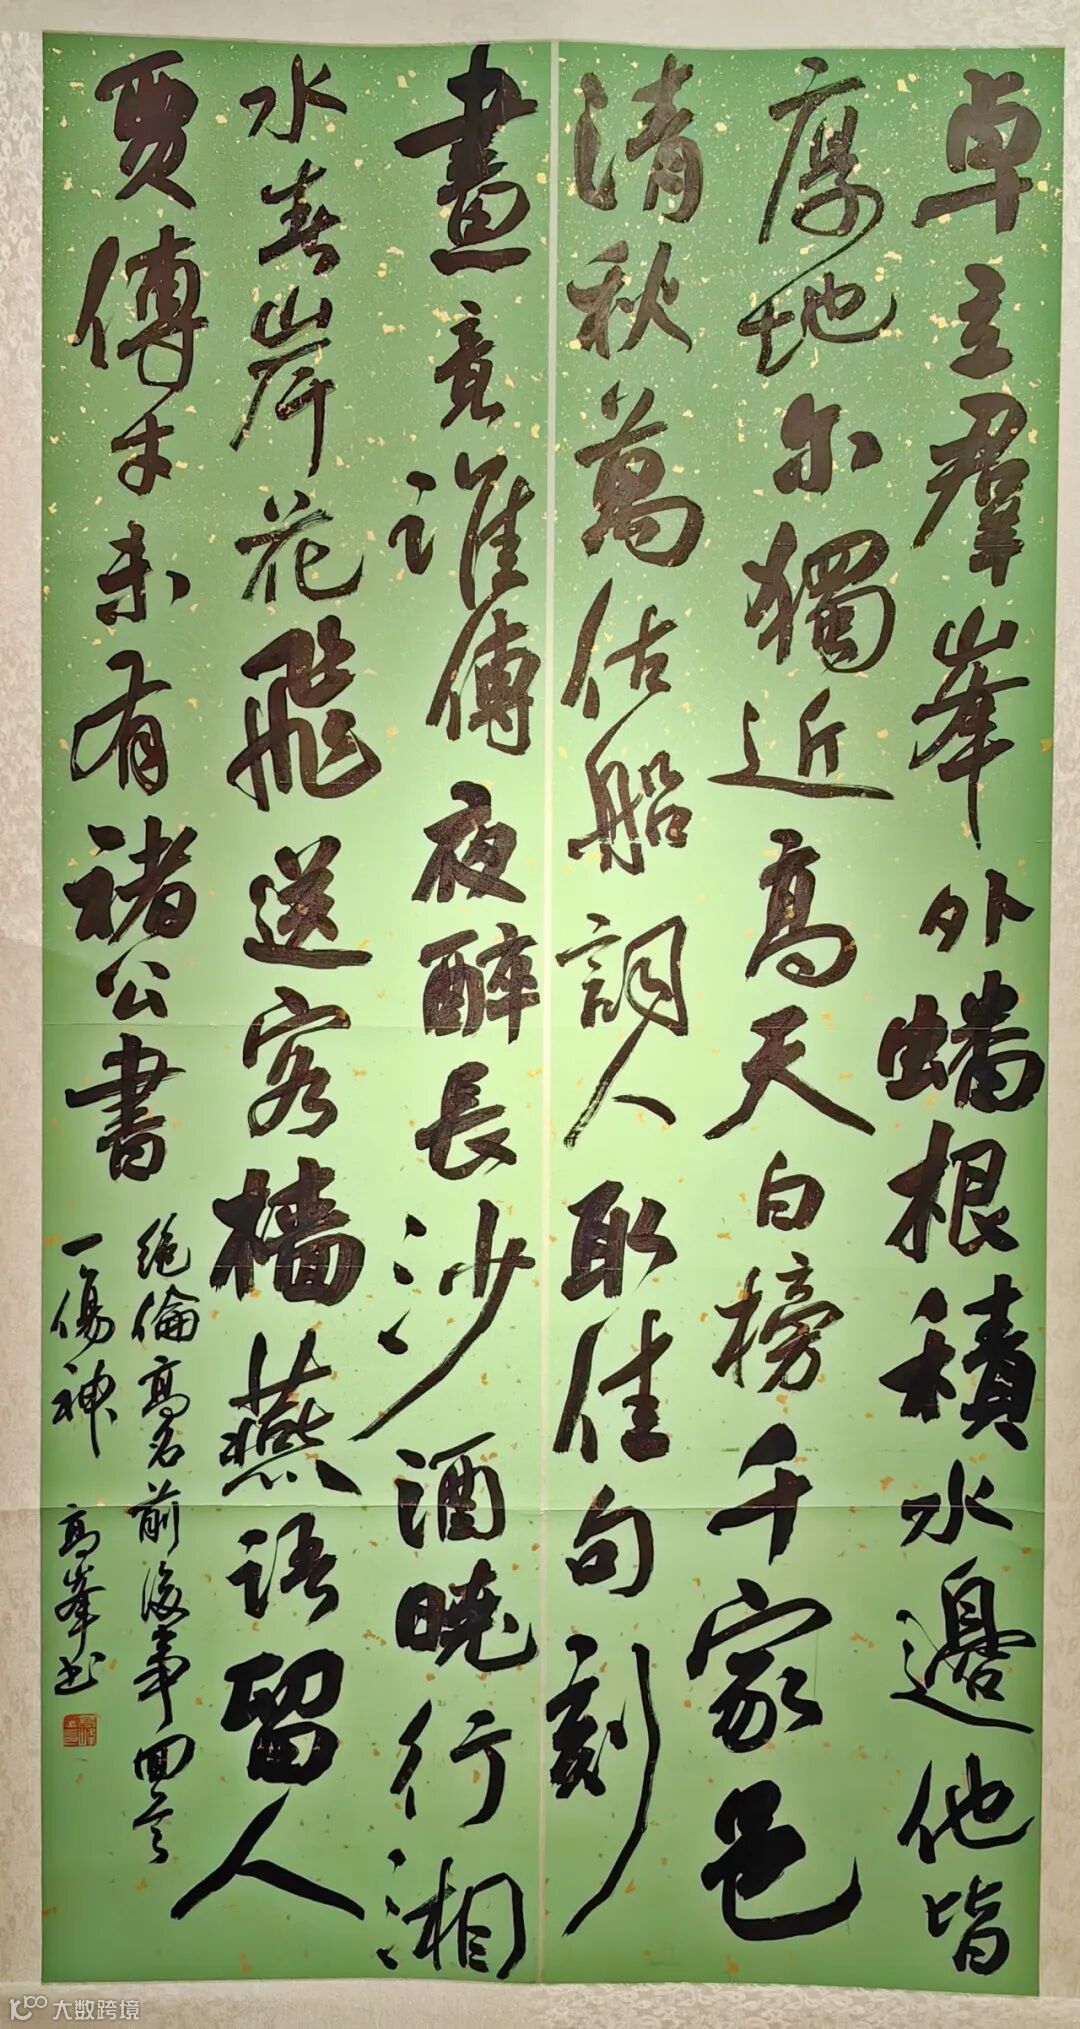 卓立羣峯外蟠根積水邊他皆
厚地尔獨近高天白榜千家邑
清秋萬估船詞人取佳句刻
畫竟誰傳夜醉長沙酒曉行湘
水春岸花飛送客檣燕語留人
賈傅才未有褚公書
絶倫高名前後事回首
一傷神
高峯书
大数跨境